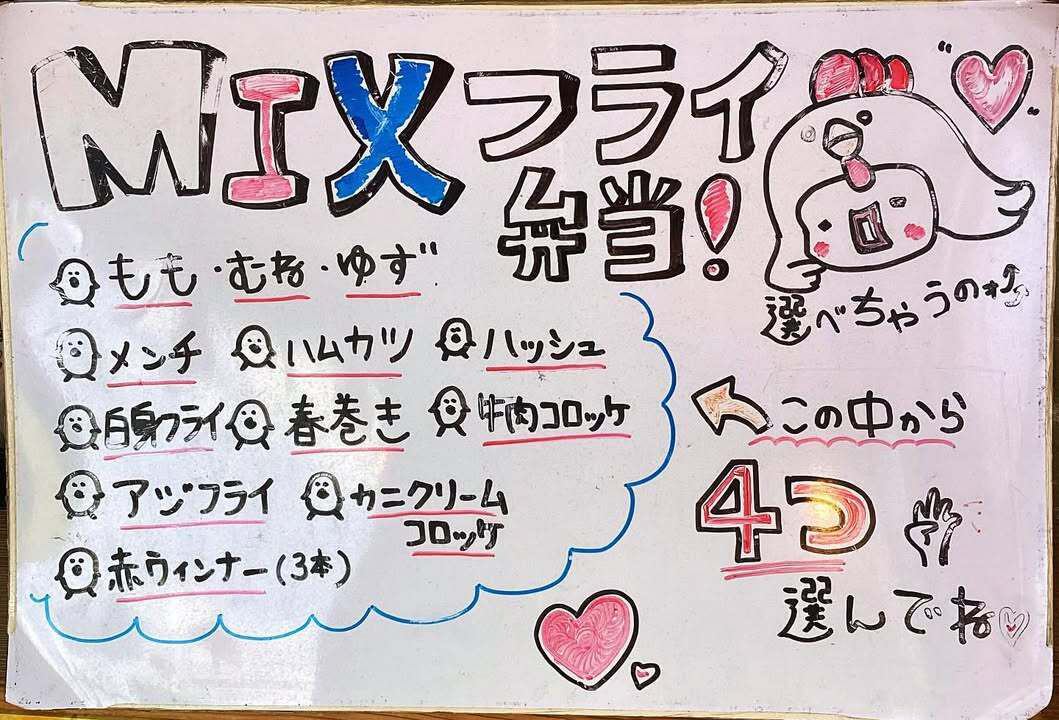 MIXフライ
弁当!
もも・むね・ゆず
メンチ ハムカツ ハッシュ
白身フライ 春巻き 牛肉コロッケ
アジフライ カニクリーム
コロッケ
赤ウィンナー(3本)
選べちゃうのォ♪
この中から
4つ
選んでね♡